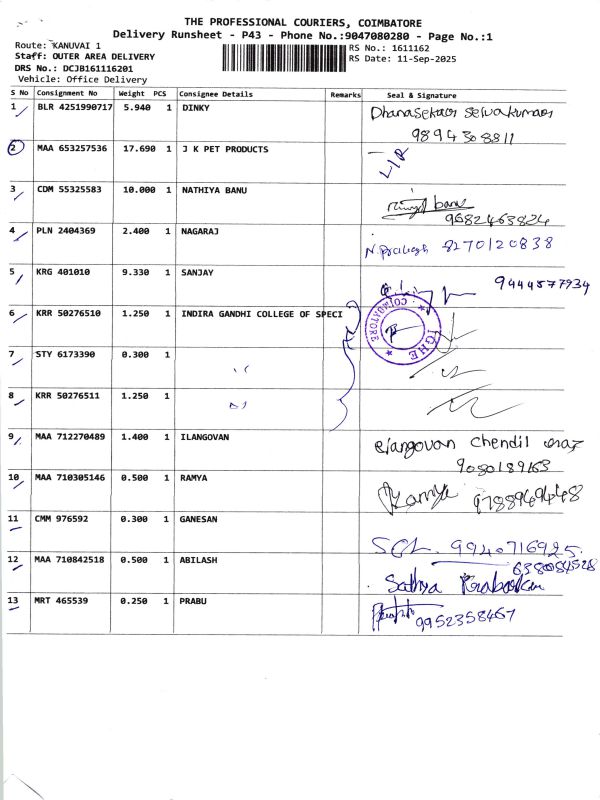 THE PROFESSIONAL COURIERS, COIMBATORE
Delivery Runsheet - P43 - Phone No.:9047080280 - Page No.:1
Route: KANUVAI 1
RS No.: 1611162
Staff: OUTER AREA DELIVERY
RS Date: 11-Sep-2025
DRS No.: DCJB161116201
Vehicle: Office Delivery
S No Consignment No Weight PCS Consignee Details Remarks Seal & Signature
1 BLR 4251990717 5.940 1 DINKY Dhanasekar Selvakumar
9894308811
2 MAA 653257536 17.690 1 J K PET PRODUCTS L/R
3 CDM 55325583 10.000 1 NATHIYA BANU banu
9682463824
4 PLN 2404369 2.400 1 NAGARAJ N. Prakash 8270120838
5 KRG 401010 9.330 1 SANJAY 9444577934
6 KRR 50276510 1.250 1 INDIRA GANDHI COLLEGE OF SPECI
COIMBATORE
IGHE
7 STY 6173390 0.300 1 ,,
8 KRR 50276511 1.250 1 ,,
9 MAA 712270489 1.400 1 ILANGOVAN elangovan chendil
9050189163
10 MAA 710305146 0.500 1 RAMYA Ramya 9788949448
11 CMM 976592 0.300 1 GANESAN 9940716925
12 MAA 710842518 0.500 1 ABILASH 6380084528
Sathya Prabakar
13 MRT 465539 0.250 1 PRABU 9952358467